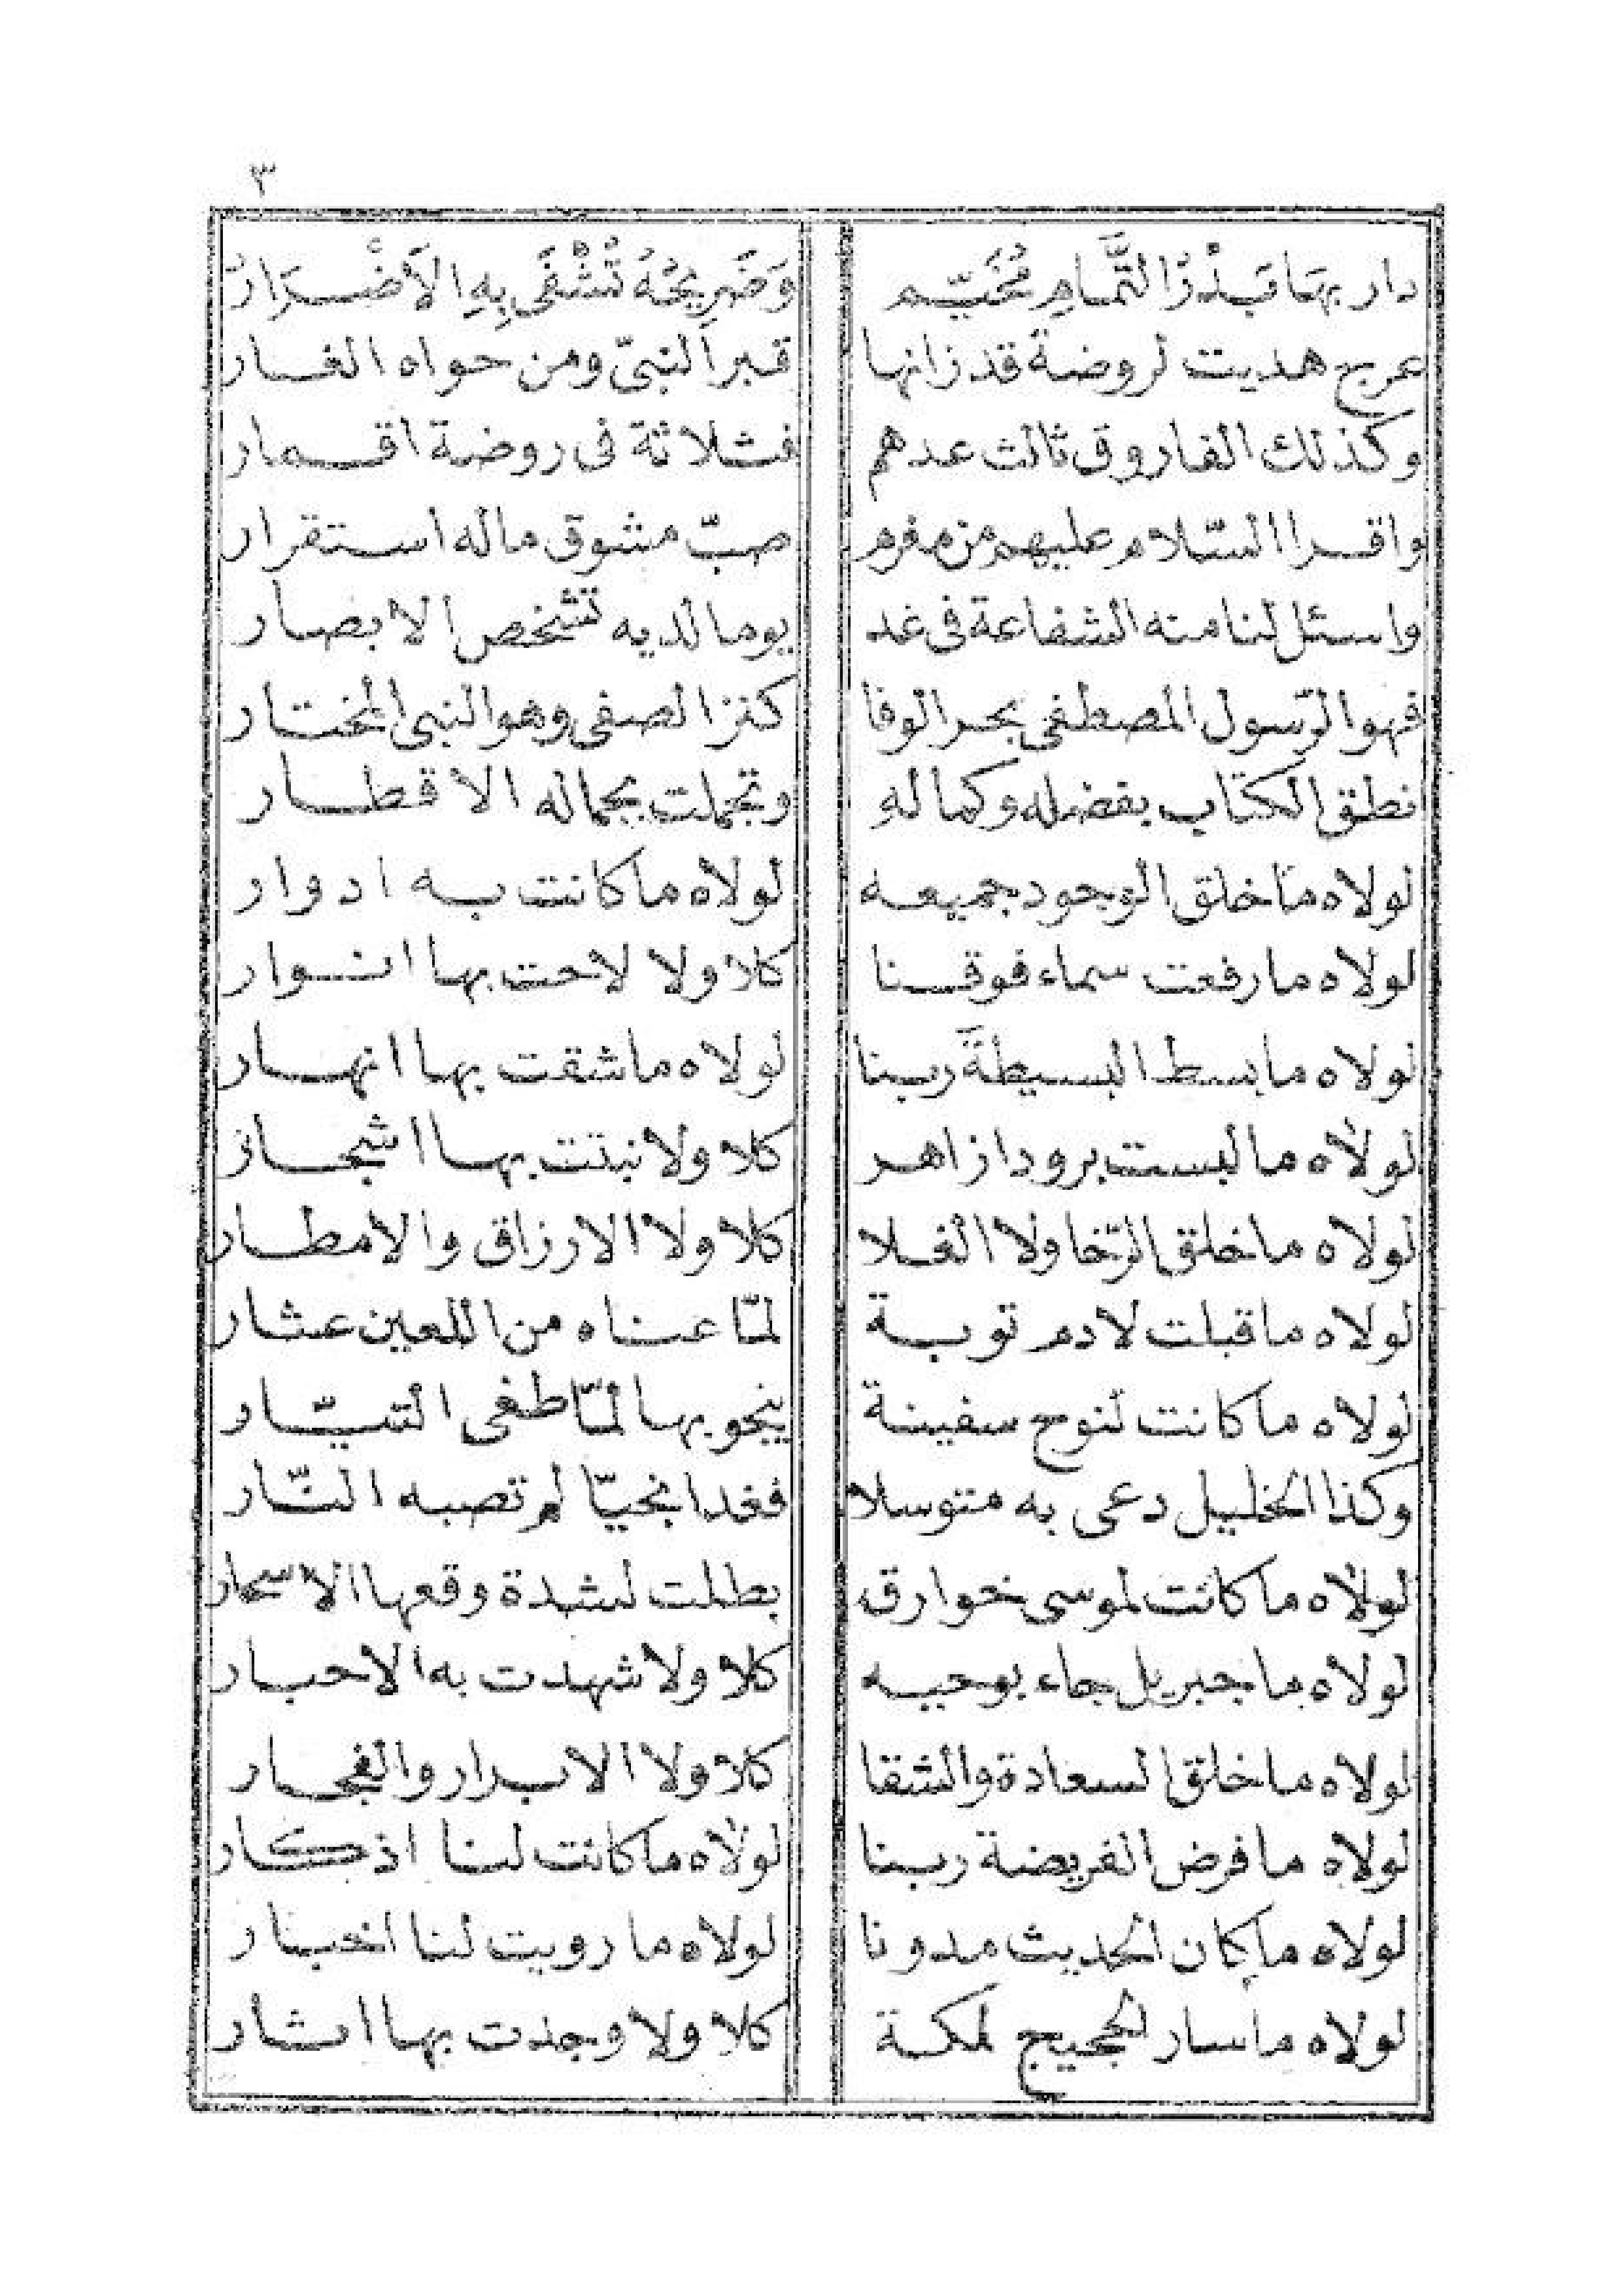 ٣
دار بهَا بَدْرُ التَّمَامِ مُخَيّم وَضَرِيحُهُ تُشْفَى بِهِ الأَضْرَارُ
عرج هديت لروضة قد زانها قبر النبىّ ومن حواه الغار
وكذلك الفاروق ثالث عدهم فثلاثة فى روضة اقمار
واقرا السّلام عليهم من مغرم صبّ مشوق ماله استقرار
واسئل لنا منه الشفاعة فى غد يوما لديه تشخص الابصار
فهو الرّسول المصطفى بحر الوفا كنز الصفى وهو النبى المختار
نطق الكتاب بفضله وكماله وتجملت بجماله الاقطار
لولاه ما خلق الوجود جميعه لولاه ما كانت به ادوار
لولاه ما رفعت سماء فوقنا كلا ولا لاحت بها انوار
لولاه ما بسط البسيطة ربنا لولاه ما شقت بها انهار
لولاه ما لبست برودا زاهر كلا ولا نبتت بها اشجار
لولاه ما خلق الرّخا ولا الغلا كلا ولا الارزاق والامطار
لولاه ما قبلت لادم توبة لمّا عناه من اللعين عثار
لولاه ما كانت لنوح سفينة ينجو بها لمّا طغى التيّار
وكذا الخليل دعى به متوسلا فغدا نجيّا لم تصبه النّار
لولاه ما كانت لموسى خوارق بطلت لشدة وقعها الاسحار
لولاه ما جبريل جاء بوحيه كلا ولا شهدت به الاحبار
لولاه ما خلق السعادة والشقا كلا ولا الابرار والفجار
لولاه ما فرض الفريضة ربنا لولاه ما كانت لنا اذكار
لولاه ما كان الحديث مدونا لولاه ما رويت لنا اخبار
لولاه ما سار الحجيج لمكة كلا ولا وجدت بها اثار